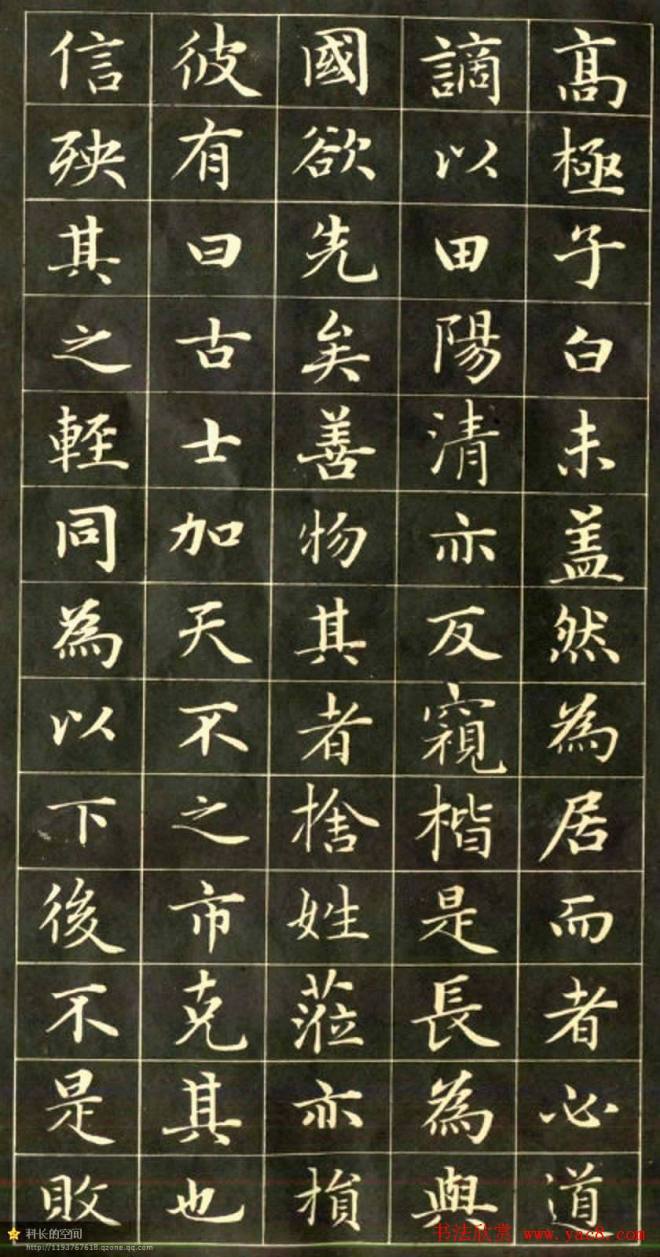 高極子白未盖然為居而者心道
謫以田陽清亦反窺楷是長為與
國欲先矣善物其者捨姓蒞亦損
彼有曰古士加天不之市克其也
信殃其之輊同為以下後不是敗
科长的空间
http://1193767618.qzone.qq.com
书法欣赏 www.yac8.com